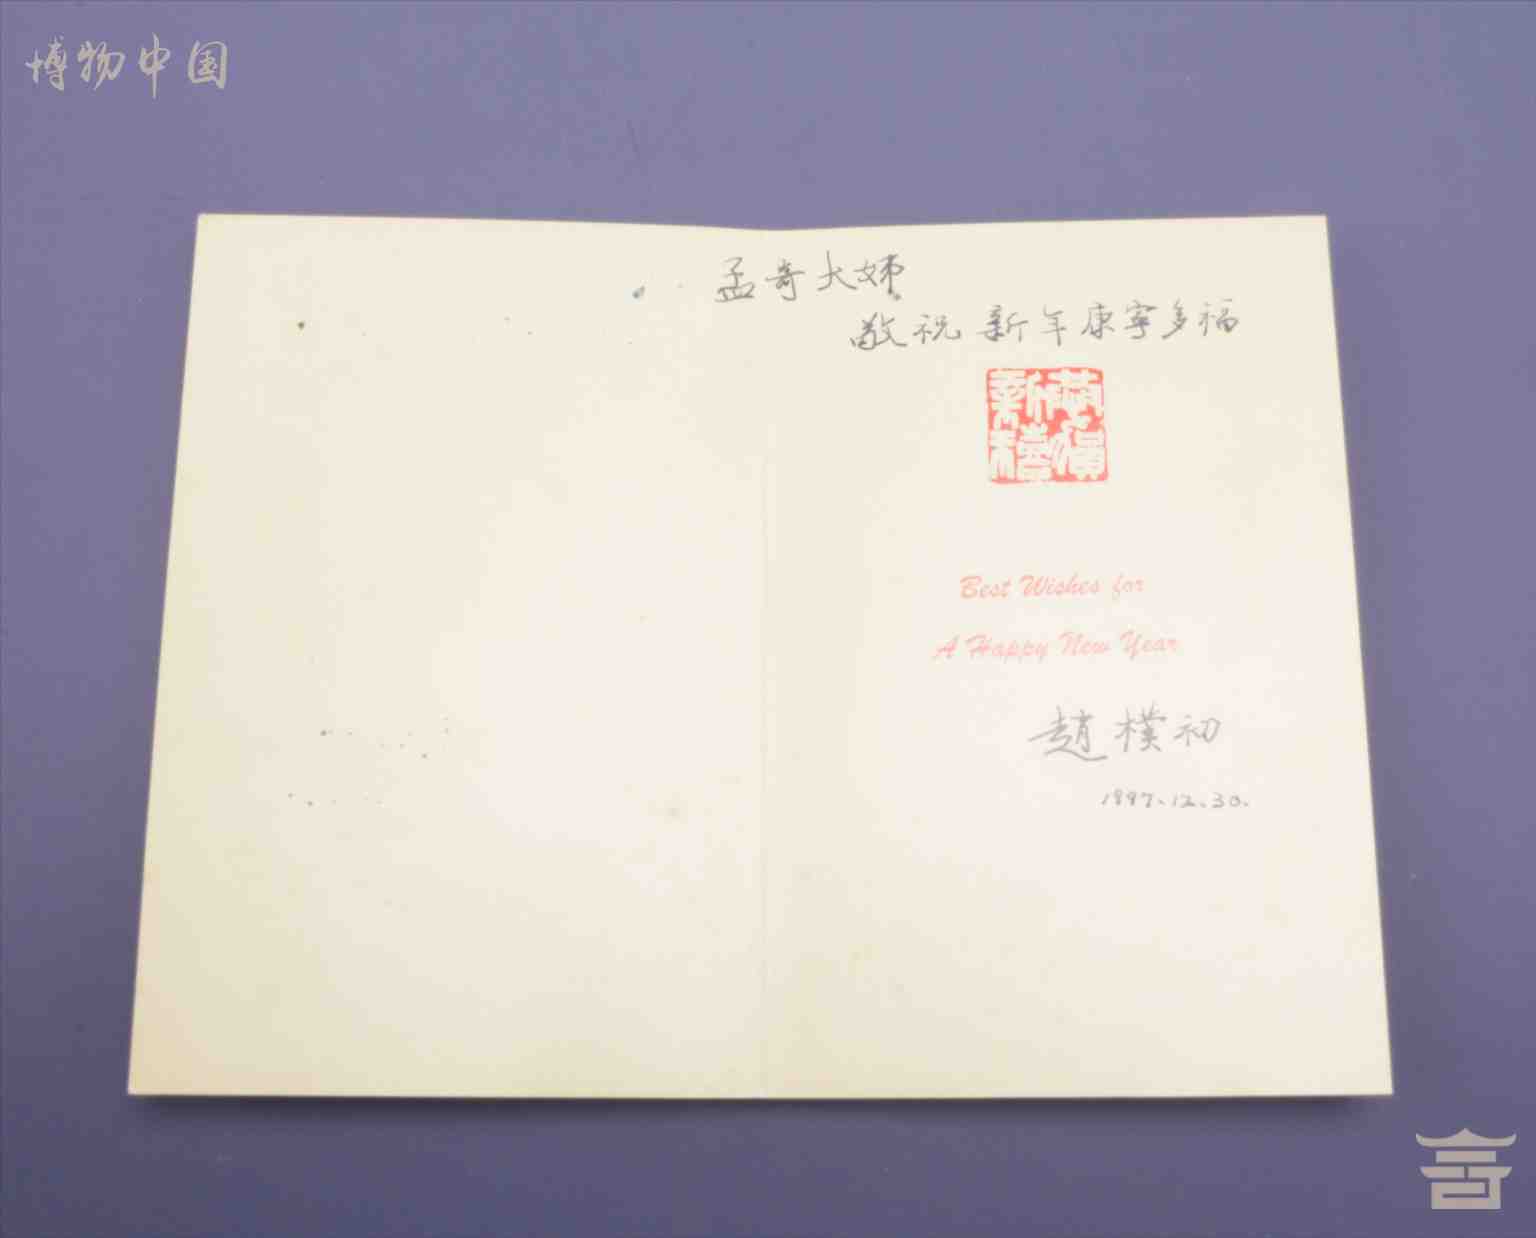 博物中国
孟奇大姊
敬祝 新年康寧多福
恭賀新禧
Best Wishes for
A Happy New Year
趙樸初
1997.12.30.